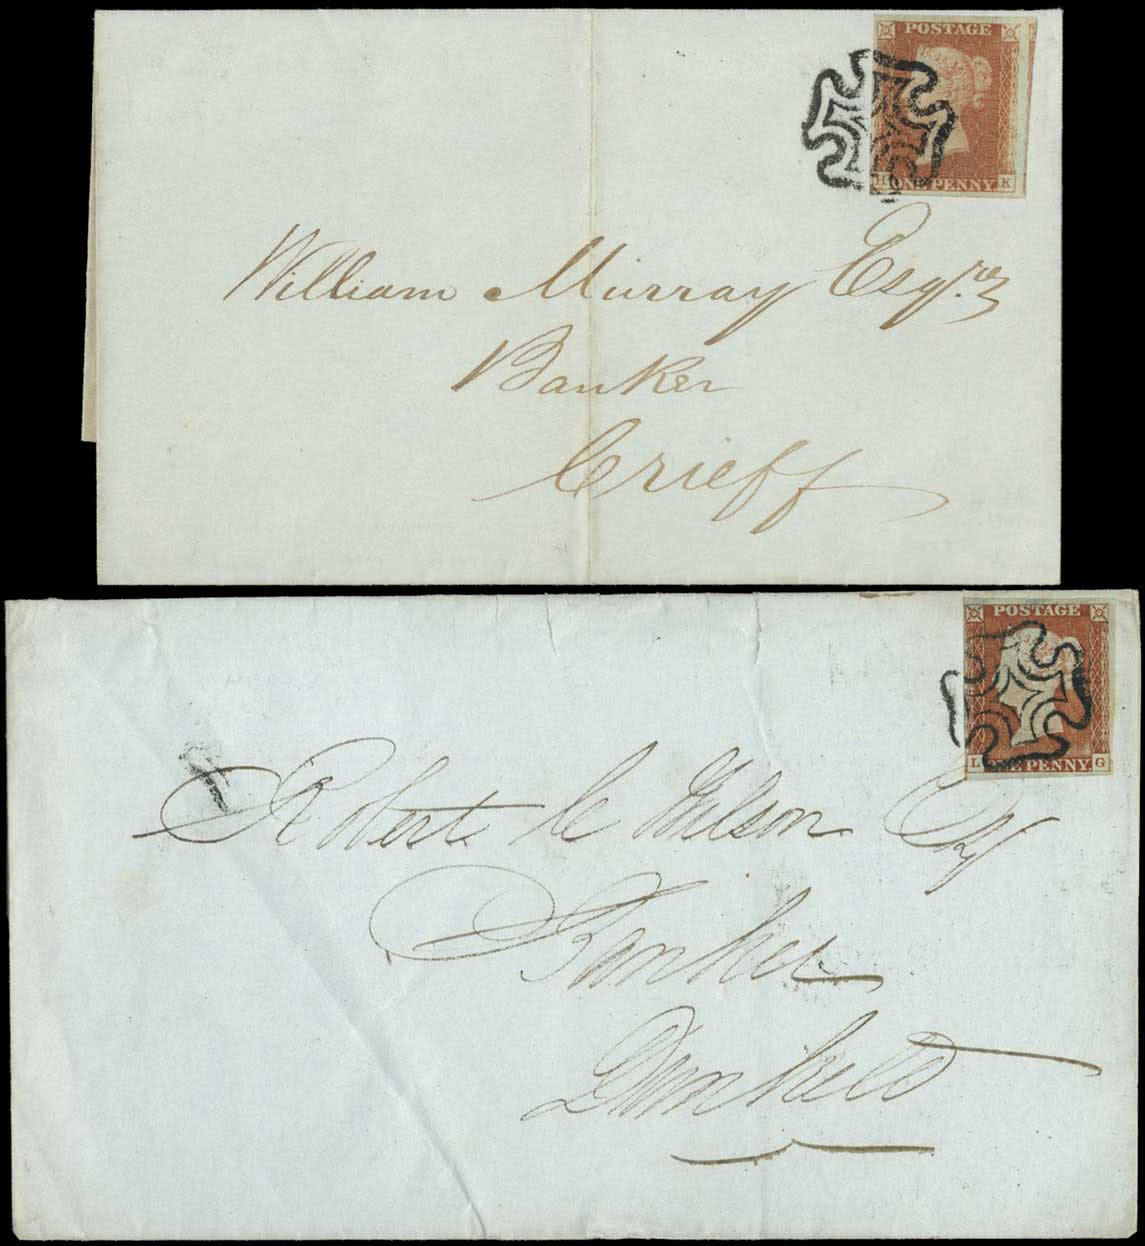 POSTAGE
H ONE PENNY K
William Murray Esqre
Banker
Crieff
POSTAGE
L ONE PENNY G
Robert
Banker
Dunkeld